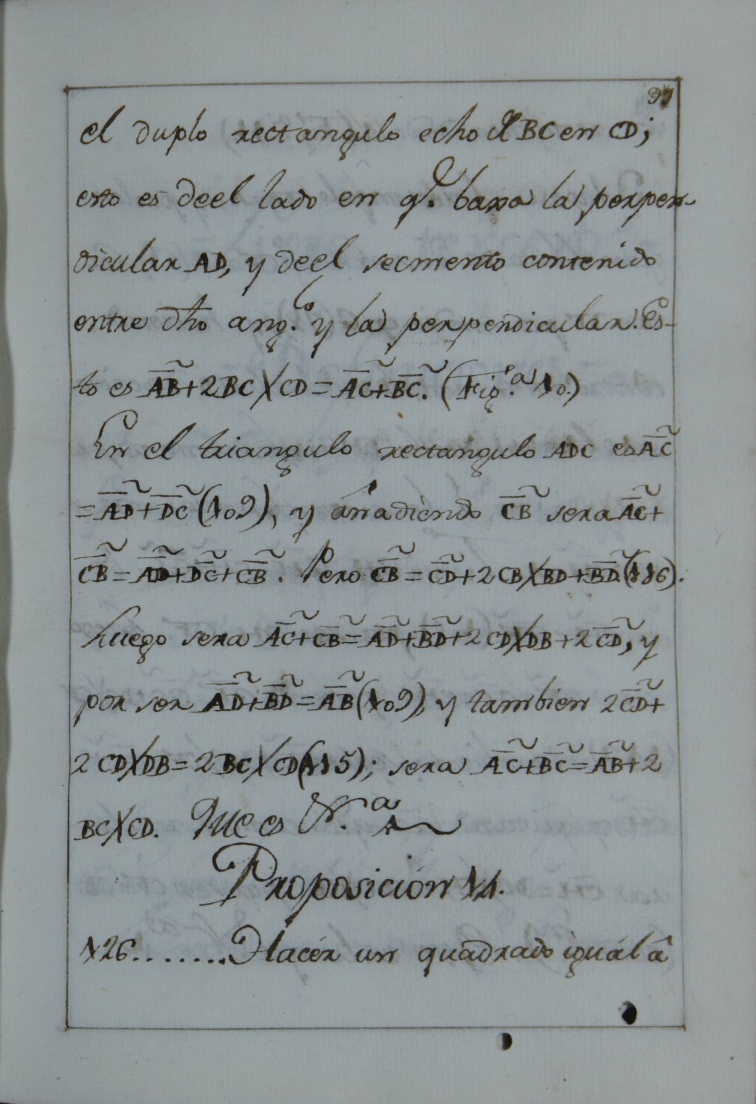 97
el duplo rectangulo echo d BC en CD;
esto es de el lado en q.e baxa la perpen-
dicular AD, y de el secmento contenido
entre dho ang.lo y la perpendicular. Es-
to es A̅B̅²+2BC╳CD=A̅C̅²+B̅C̅². (Fig.ª 10.)
En el triangulo rectangulo ADC es A̅C̅²
=A̅D̅²+D̅C̅² (109), y añadiendo C̅B̅² sera A̅C̅²+
C̅B̅²=A̅D̅²+D̅C̅²+C̅B̅². Pero C̅B̅²=C̅D̅²+2CB╳BD+B̅D̅² (116).
Luego sera A̅C̅²+C̅B̅²=A̅D̅²+B̅D̅²+2CD╳DB+2C̅D̅², y
por ser A̅D̅²+B̅D̅²=A̅B̅² (109), y tambien 2C̅D̅²+
2CD╳DB=2BC╳CD (115); sera A̅C̅²+B̅C̅²=A̅B̅²+2
BC╳CD. Que es
Proposicion 14.
126........Hacer un quadrado igual â